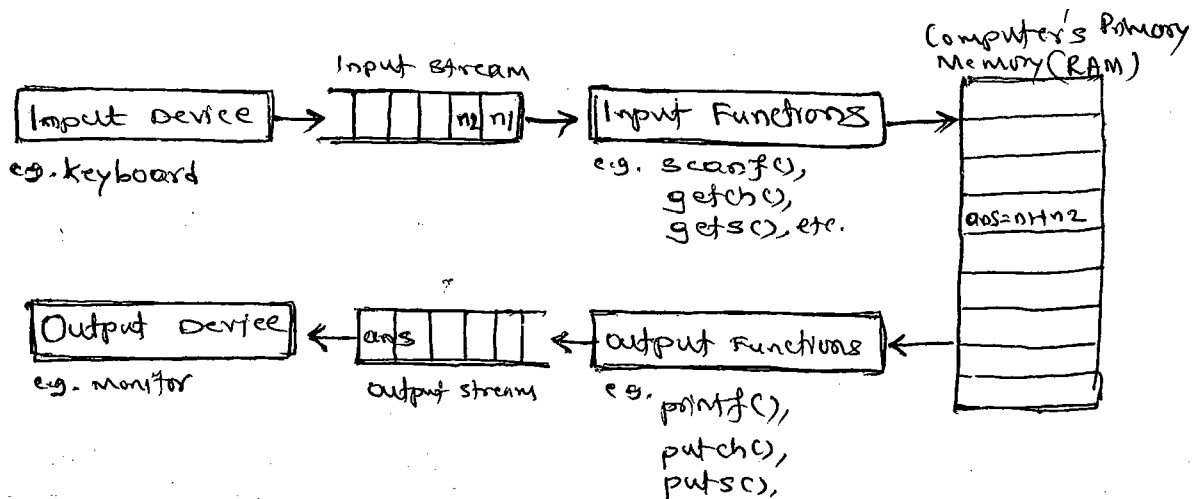 Computer's Primary
Memory (RAM)
Input stream
Input Device
n2 n1
Input Functions
e.g. keyboard
e.g. scanf(),
getch(),
gets(), etc.
ans=n1+n2
Output Device
ans
output Functions
e.g. monitor
output stream
e.g. printf(),
putch(),
puts(),